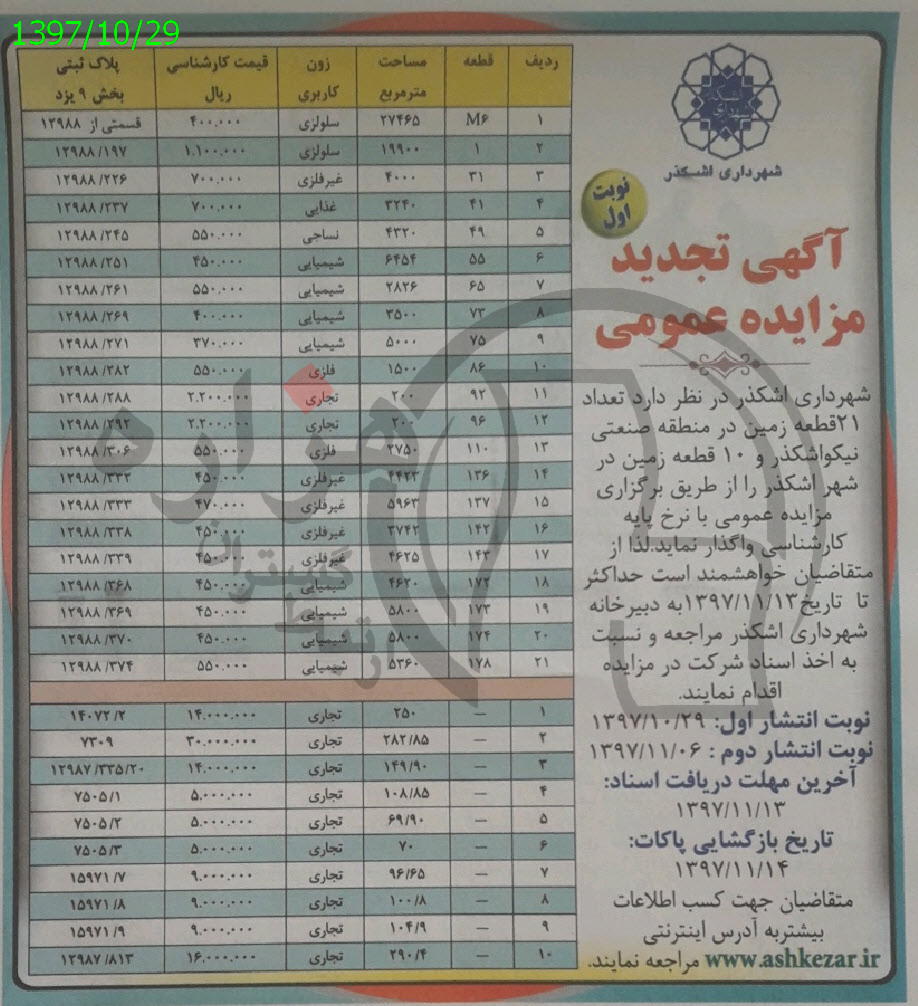 1397/10/29
شهرداری اشکذر
نوبت
اول
آگهی تجدید
مزایده عمومی
شهرداری اشکذر در نظر دارد تعداد
۲۱قطعه زمین در منطقه صنعتی
نیکواشکذر و ۱۰ قطعه زمین در
شهر اشکذر را از طریق برگزاری
مزایده عمومی با نرخ پایه
کارشناسی واگذار نماید.لذا از
متقاضیان خواهشمند است حداکثر
تا تاریخ۱۳۹۷/۱۱/۱۳به دبیرخانه
شهرداری اشکذر مراجعه و نسبت
به اخذ اسناد شرکت در مزایده
اقدام نمایند.
نوبت انتشار اول: ۱۳۹۷/۱۰/۲۹
نوبت انتشار دوم : ۱۳۹۷/۱۱/۰۶
آخرین مهلت دریافت اسناد:
۱۳۹۷/۱۱/۱۳
تاریخ بازگشایی پاکات:
۱۳۹۷/۱۱/۱۴
متقاضیان جهت کسب اطلاعات
بیشتربه آدرس اینترنتی
www.ashkezar.ir مراجعه نمایند.
ردیف قطعه مساحت مترمربع زون کاربری قیمت کارشناسی ریال پلاک ثبتی بخش ۹ یزد
۱ M۶ ۲۷۴۶۵ سلولزی ۴۰۰.۰۰۰ قسمتی از ۱۲۹۸۸
۲ ۱ ۱۹۹۰۰ سلولزی ۱.۱۰۰.۰۰۰ ۱۲۹۸۸/۱۹۷
۳ ۳۱ ۴۰۰۰ غیرفلزی ۷۰۰.۰۰۰ ۱۲۹۸۸/۲۲۶
۴ ۴۱ ۳۲۴۰ غذایی ۷۰۰.۰۰۰ ۱۲۹۸۸/۲۳۷
۵ ۴۹ ۴۳۲۰ نساجی ۵۵۰.۰۰۰ ۱۲۹۸۸/۲۴۵
۶ ۵۵ ۶۴۵۴ شیمیایی ۴۵۰.۰۰۰ ۱۲۹۸۸/۲۵۱
۷ ۶۵ ۲۸۲۶ شیمیایی ۵۵۰.۰۰۰ ۱۲۹۸۸/۲۶۱
۸ ۷۳ ۳۵۰۰ شیمیایی ۴۰۰.۰۰۰ ۱۲۹۸۸/۲۶۹
۹ ۷۵ ۵۰۰۰ شیمیایی ۳۷۰.۰۰۰ ۱۲۹۸۸/۲۷۱
۱۰ ۸۶ ۱۵۰۰ فلزی ۵۵۰.۰۰۰ ۱۲۹۸۸/۲۸۲
۱۱ ۹۲ ۲۰۰ تجاری ۲.۲۰۰.۰۰۰ ۱۲۹۸۸/۲۸۸
۱۲ ۹۶ ۲۰۰ تجاری ۲.۲۰۰.۰۰۰ ۱۲۹۸۸/۲۹۲
۱۳ ۱۱۰ ۲۷۵۰ فلزی ۵۵۰.۰۰۰ ۱۲۹۸۸/۳۰۶
۱۴ ۱۳۶ ۴۴۲۳ غیرفلزی ۴۵۰.۰۰۰ ۱۲۹۸۸/۳۳۲
۱۵ ۱۳۷ ۵۹۶۳ غیرفلزی ۴۷۰.۰۰۰ ۱۲۹۸۸/۳۳۳
۱۶ ۱۴۲ ۳۷۴۲ غیرفلزی ۴۵۰.۰۰۰ ۱۲۹۸۸/۳۳۸
۱۷ ۱۴۳ ۴۶۲۵ غیرفلزی ۴۵۰.۰۰۰ ۱۲۹۸۸/۳۳۹
۱۸ ۱۷۲ ۴۶۲۰ شیمیایی ۴۵۰.۰۰۰ ۱۲۹۸۸/۳۶۸
۱۹ ۱۷۳ ۵۸۰۰ شیمیایی ۴۵۰.۰۰۰ ۱۲۹۸۸/۳۶۹
۲۰ ۱۷۴ ۵۸۰۰ شیمیایی ۴۵۰.۰۰۰ ۱۲۹۸۸/۳۷۰
۲۱ ۱۷۸ ۵۳۶۰ شیمیایی ۵۵۰.۰۰۰ ۱۲۹۸۸/۳۷۴
۱ — ۲۵۰ تجاری ۱۴.۰۰۰.۰۰۰ ۱۴۰۷۲/۲
۲ — ۲۸۲/۸۵ تجاری ۳۰.۰۰۰.۰۰۰ ۷۳۰۹
۳ — ۱۴۹/۹۰ تجاری ۱۴.۰۰۰.۰۰۰ ۱۲۹۸۷/۳۳۵/۲۰
۴ — ۱۰۸/۸۵ تجاری ۵.۰۰۰.۰۰۰ ۷۵۰۵/۱
۵ — ۶۹/۹۰ تجاری ۵.۰۰۰.۰۰۰ ۷۵۰۵/۲
۶ — ۷۰ تجاری ۵.۰۰۰.۰۰۰ ۷۵۰۵/۳
۷ — ۹۶/۶۵ تجاری ۹.۰۰۰.۰۰۰ ۱۵۹۷۱/۷
۸ — ۱۰۰/۸ تجاری ۹.۰۰۰.۰۰۰ ۱۵۹۷۱/۸
۹ — ۱۰۴/۹ تجاری ۹.۰۰۰.۰۰۰ ۱۵۹۷۱/۹
۱۰ — ۲۹۰/۴ تجاری ۱۶.۰۰۰.۰۰۰ ۱۲۹۸۷/۸۱۳